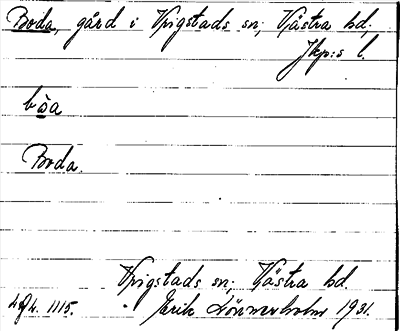 Boda, gård i Vrigstads sn; Västra hd;
Jkp:s l.
bǫa
Boda.
Vrigstads sn; Västra hd
Erik Lönnerholm 1931.